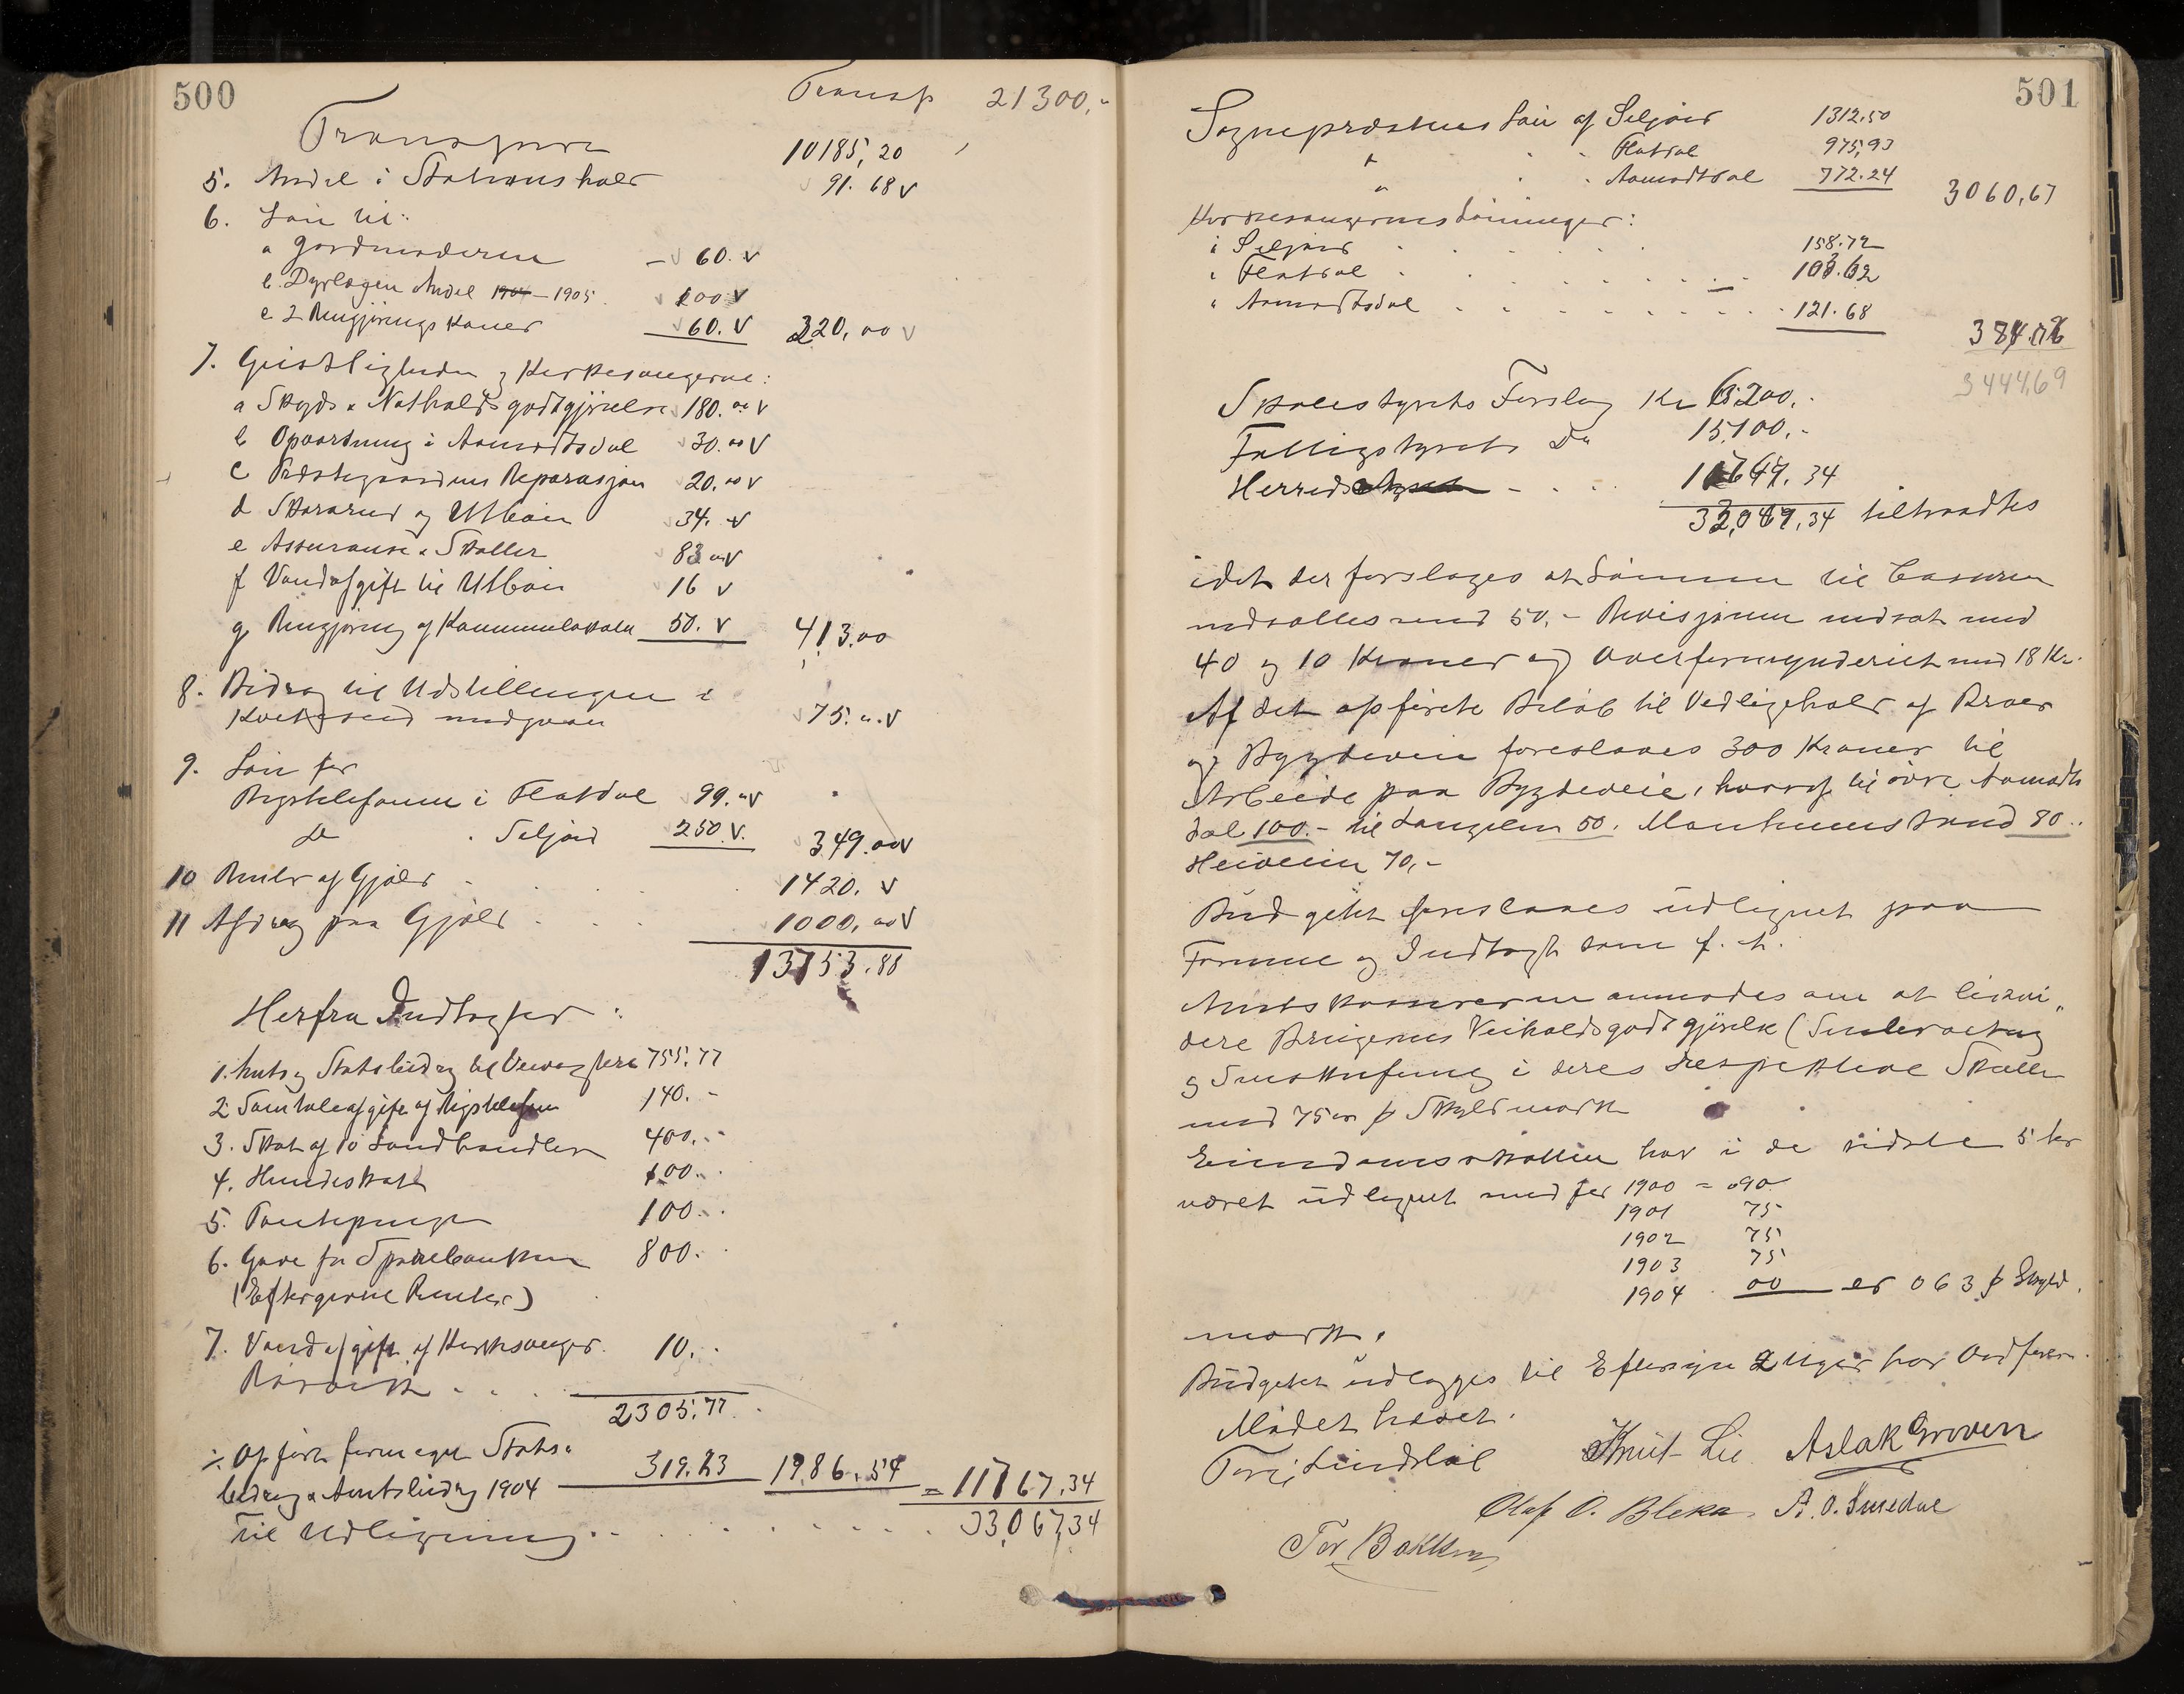 500
Transp 21300,-
Transport 10185,20
5. Andel i Stationshold 91.68 v
6. Løn til:
a Jordmoderen 60. v
b. Dyrlægen Andel 1904 - 1905. 200 v
c 2 Rengjøringskoner 60. v 320,00 v
7. Geistligheden og Kirkesangerne:
a Skyds & Natholdsgodtgjørelse 180.00 v
b Opvartning i Aamodtsdal 30.00 v
c Præstegaardens Reparasjon 20.00 v
d Skararud og Utbøin 34. v
e Assuranse & Skatter 83 00 v
f Vandafgift til Utbøin 16 v
g Rengjøring af Kommunelokalet 50. v 413.00
8. Bidrag til Udstillingen i
Kviteseid medgaar 75.00 v
9. Løn for
Rigstelefonen i Flatdal 99.00 v
do Seljord 250 v. 349.00 v
10 Renter af Gjæld 1420. v
11 Afdrag paa Gjæld 1000,00 v
13753.88
Herfra Indtægter:
1. Amts og Statsbidrag til 755.77
2 Samtaleafgift af Rigstelefon 140. -
3. Skat af 10 Landhandlere 400. -
4. Hundeskat 100. -
5. 100. -
6. Gave fra Sparebanken 800. -
(Eftergivne Renter)
7. Vandafgift af Kirkesanger 10. -
2305.77
÷ Opført formeget Stats &
bidrag & Amtsbidrag 1904 319.23 1986.54 = 11767.34
Til Udligning 33,067,34
501
Sogneprestens Løn af Seljord 1312.50
" Flatdal 975,93
" Aamodtsdal 772.24 3060,67
Kirkesangernes Lønninger:
i Seljord 158.72
i Flatdal 103.62
" Aamodtsdal 121.68
384.02
3444,69
Skolestyrets Forslag Kr 6.200,-
Fattigstyrets Do 15,100,-
Herreds 11,34
32,34 tiltraadtes
idet der forslages at Lønnen til Casseren
nedsættes med 50,- Revisjonen nedsat med
40 og 10 Kroner og Overformynderiet med 18 Kr.
Af det opførte Beløb til Vedligehold af Broer
og Bygdeveie foreslaaes 300 Kroner til
Arbeide paa Bygdeveie, hvoraf til øvre Aamodts
dal 100.- til Langlim 50. Manheimstrand 80.
Heiveien 70,-
Budgettet foreslaaes udlignet paa
Formue og Indtægt som f. A.
Amtskasereren anmodes om at likvi-
dere Brugernes Veiholdsgodtgjørelse (
og Snemkufning i deres respektive Skatter
med 75 øre pr Skyldmark
Eiendomsskatten har i de sidste 5 Aar
været udlignet med for 1900 = 090
1901 75
1902 75
1903 75
1904 00 er 063 pr Skyld.
mark.
Budgettet udlægges til Eftersyn 2 Uger hos Ordføren.
Mødet hævet.
Torj Lindstøl Knut Lie Aslak Groven
Olaf O. Bleka A. O. Smedal
Tor Bakken